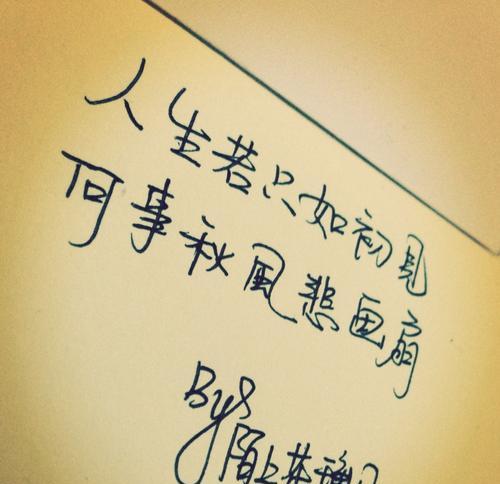 人生若只如初見
何事秋風悲画扇
By 陌上